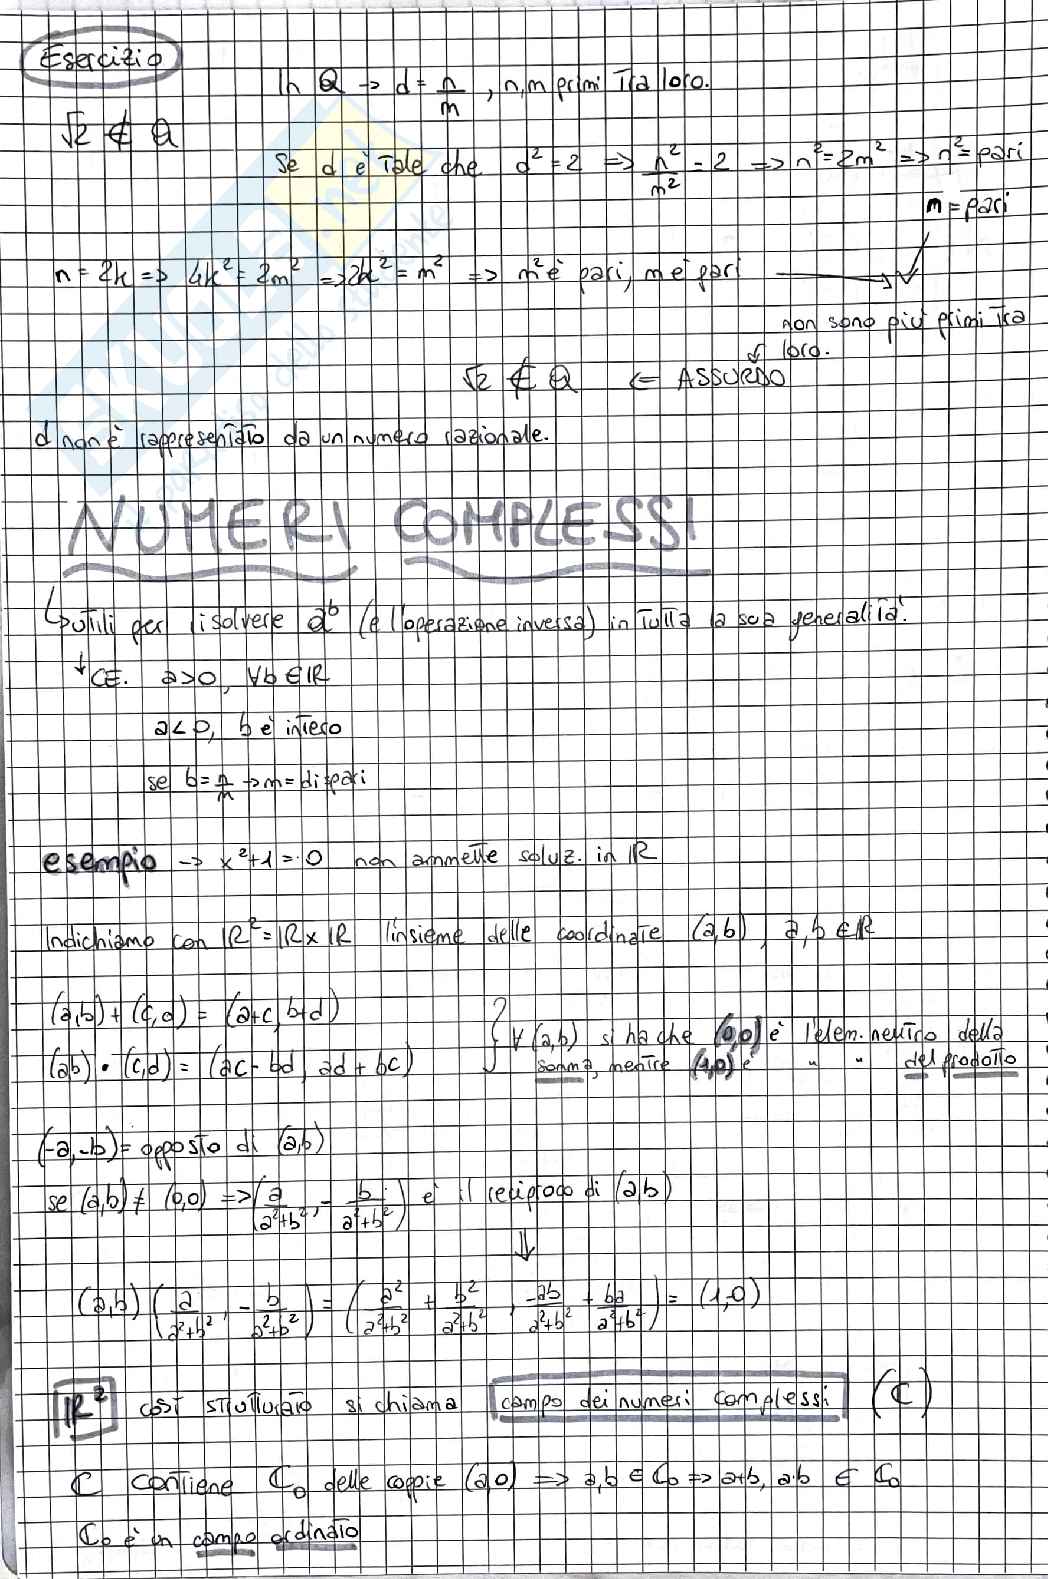 Esercizio
In Q → d = n/m , n, m primi tra loro.
√2 ∉ Q
Se d è tale che d² = 2 ⇒ n²/m² = 2 ⇒ n² = 2m² ⇒ n² = pari
n = pari
n = 2k ⇒ 4k² = 2m² ⇒ 2k² = m² ⇒ m² è pari, m è pari
non sono più primi tra
loro.
√2 ∉ Q ⇐ ASSURDO
d non è rappresentato da un numero razionale.
NUMERI COMPLESSI
↳ utili per risolvere a^b (e l'operazione inversa) in tutta la sua generalità.
↓ CE. a>0, ∀b ∈ ℝ
a<0, b è intero
se b = n/m → m = dispari
esempio → x²+1=0 non ammette soluz. in ℝ
Indichiamo con ℝ² = ℝ x ℝ l'insieme delle coordinate (a,b), a,b ∈ ℝ
(a,b) + (c,d) = (a+c, b+d)
(ab) • (c,d) = (ac - bd, ad + bc)
∀ (a,b) si ha che (0,0) è l'elem. neutro della
somma, mentre (1,0) è " " del prodotto
(-a,-b) = opposto di (a,b)
se (a,b) ≠ (0,0) ⇒ (a/(a²+b²), - b/(a²+b²)) è il reciproco di (ab)
⇓
(a,b) (a/(a²+b²), - b/(a²+b²)) = (a²/(a²+b²) + b²/(a²+b²), -ab/(a²+b²) + ba/(a²+b²)) = (1,0)
ℝ² così strutturato si chiama campo dei numeri complessi (ℂ)
ℂ contiene ℂ₀ delle coppie (a,0) ⇒ a,b ∈ ℂ₀ ⇒ a+b, a·b ∈ ℂ₀
ℂ₀ è un campo ordinato